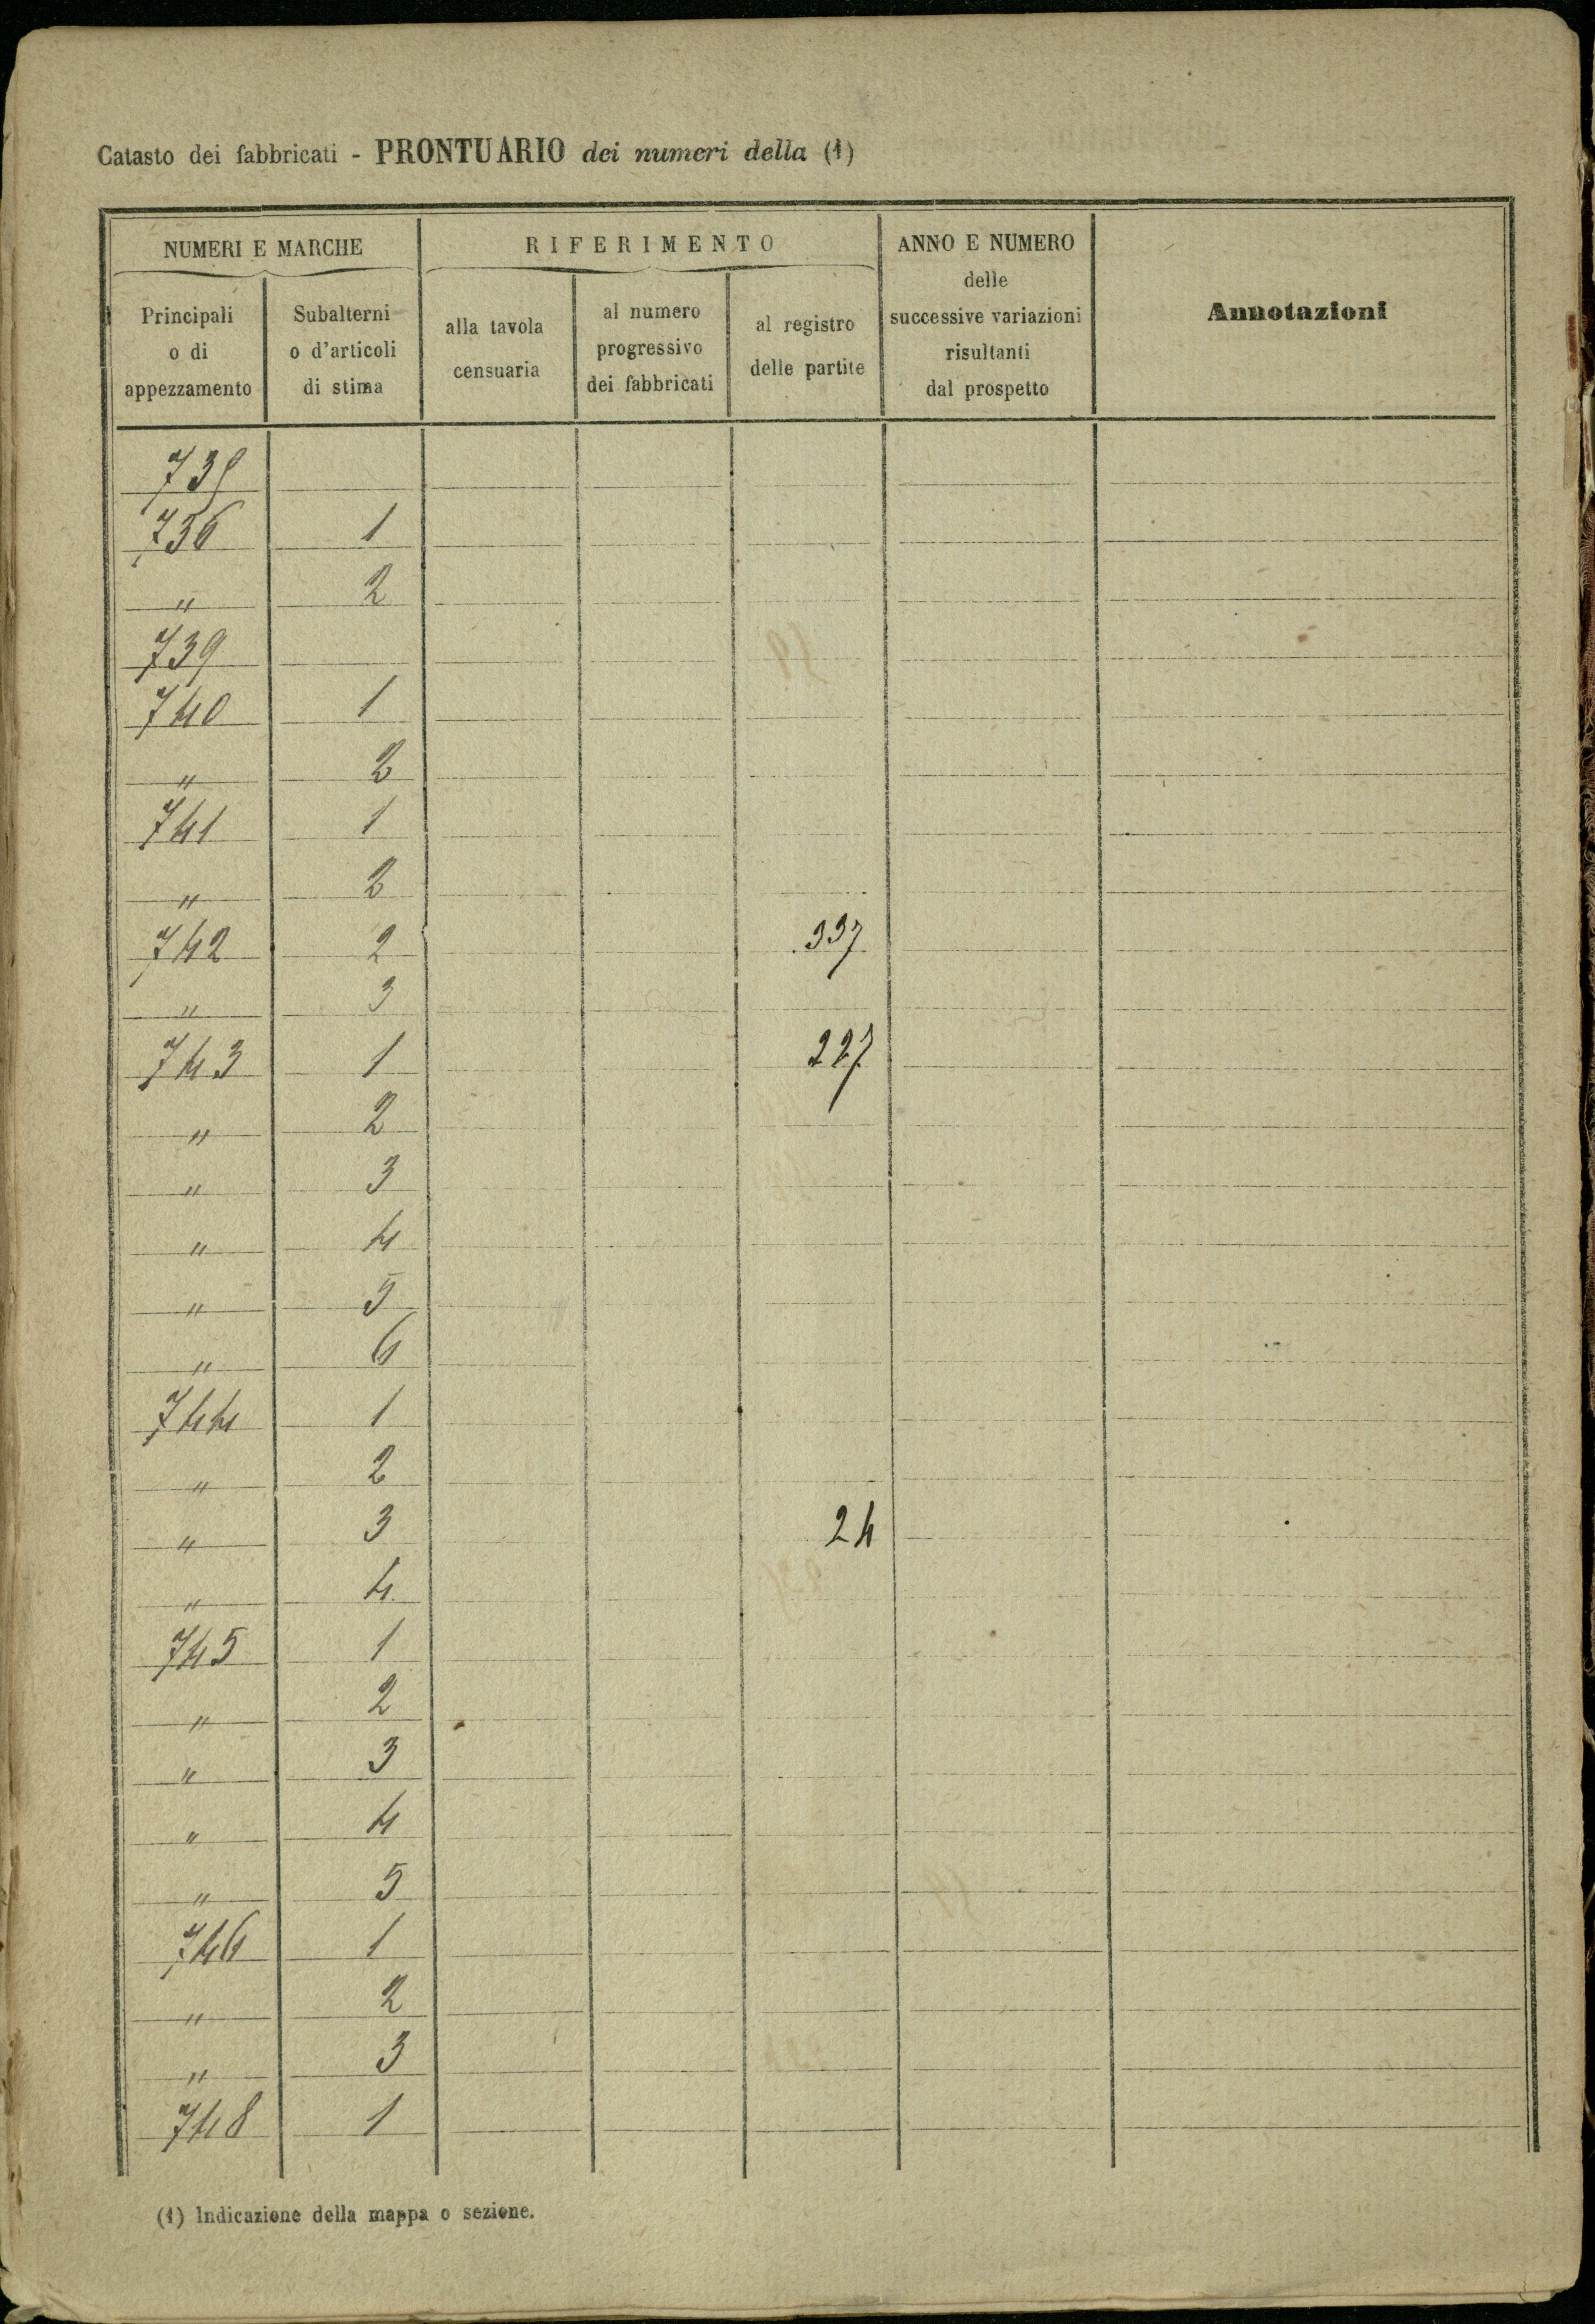 Catasto dei fabbricati - PRONTUARIO dei numeri della (1)
NUMERI E MARCHE
RIFERIMENTO
ANNO E NUMERO
delle
successive variazioni
risultanti
dal prospetto
Annotazioni
Principali
o di
appezzamento
Subalterni
o d'articoli
di stima
alla tavola
censuaria
al numero
progressivo
dei fabbricati
al registro
delle partite
735
736 1
" 2
739
740 1
" 2
741 1
" 2
742 2 337
" 3
743 1 227
" 2
" 3
" 4
" 5
" 6
744 1
" 2
" 3 24
" 4
745 1
" 2
" 3
" 4
" 5
746 1
" 2
" 3
748 1
(1) Indicazione della mappa o sezione.